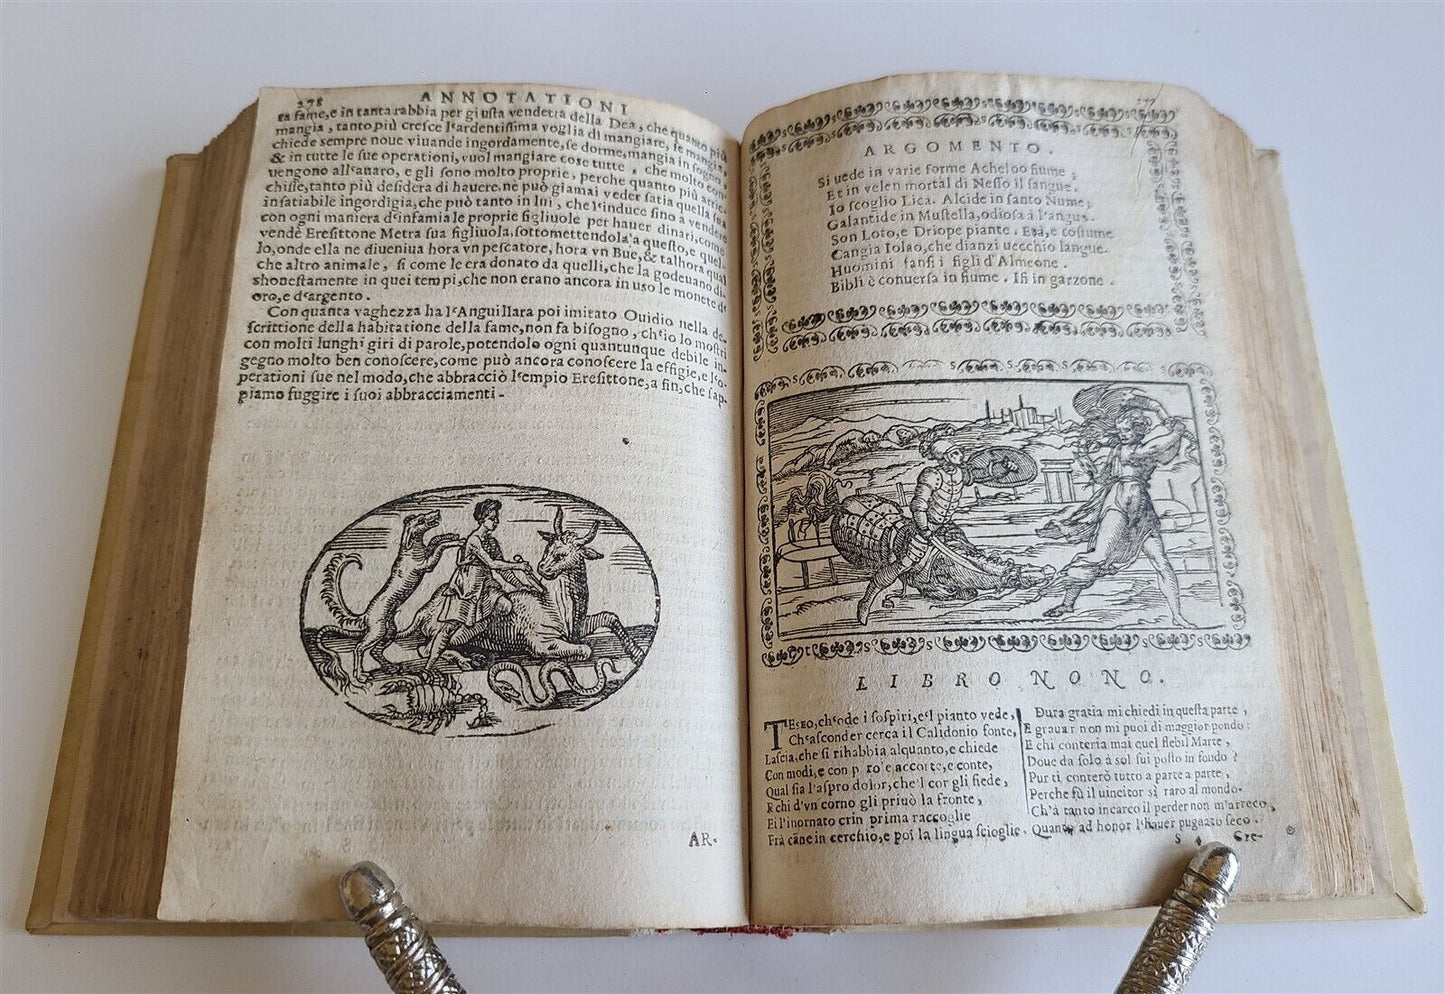 278
ANNOTATIONI
ta fame, e in tanta rabbia per giusta vendetta della Dea, che quanto più
mangia, tanto più cresce l'ardentissima voglia di mangiare, se mangia,
chiede sempre noue viuande ingordamente, se dorme, mangia in sogno,
& in tutte le sue operationi, vuol mangiare cose tutte, che molto con-
uengono all'auaro, e gli sono molto proprie, perche quanto più arric-
chisse, tanto più desidera di hauere, ne può giamai veder satia quella sua
insatiabile ingordigia, che può tanto in lui, che l'induce sino à vendere
con ogni maniera d'infamia le proprie figliuole per hauer dinari, come
vendè Eresittone Metra sua figliuola, sottomettendola a questo, e quel-
lo, onde ella ne diueniua hora vn pescatore, hora vn Bue, & talhora qual
che altro animale, si come le era donato da quelli, che la godeuano di-
shonestamente in quei tempi, che non erano ancora in uso le monete d'
oro, e d'argento.
Con quanta vaghezza ha l'Anguillara poi imitato Ouidio nella de-
scrittione della habitatione della fame, non fa bisogno, ch'io lo mostri
con molti lunghi giri di parole, potendolo ogni quantunque debile in-
gegno molto ben conoscere, come può ancora conoscere la effigie, e l'o-
perationi sue nel modo, che abbracciò l'empio Eresittone, a fin, che sap-
piamo fuggire i suoi abbracciamenti.
AR-
277
ARGOMENTO.
Si uede in varie forme Acheloo fiume,
Et in velen mortal di Nesso il sangue.
Io scoglio Lica. Alcide in santo Nume,
Galantide in Mustella, odiosa à l'angue.
Son Loto, e Driope piante. Età, e costume
Cangia Iolao, che dianzi uecchio langue.
Huomini fansi i figli d'Almeone.
Bibli è conuersa in fiume. Isi in garzone.
LIBRO NONO.
TESEO, ch'ode i sospiri, e'l pianto vede,
Ch'asconder cerca il Calidonio fonte,
Lascia, che si rihabbia alquanto, e chiede
Con modi, e con p ro'e accorte, e conte,
Qual sia l'aspro dolor, che'l cor gli fiede,
E chi d'vn corno gli priuò la fronte,
Ei l'inornato crin prima raccoglie
Frà cãne in cerchio, e poi la lingua scioglie.
Dura gratia mi chiedi in questa parte,
E grauar non mi puoi di maggior pondo:
E chi conteria mai quel flebil Marte,
Doue da solo à sol fui posto in fondo?
Pur ti conterò tutto a parte a parte,
Perche fù il uincitor sì raro al mondo.
Ch'à tanto incarco il perder non m'arreco,
Quanto ad honor l'hauer pugnato seco.
S 4 Cre-